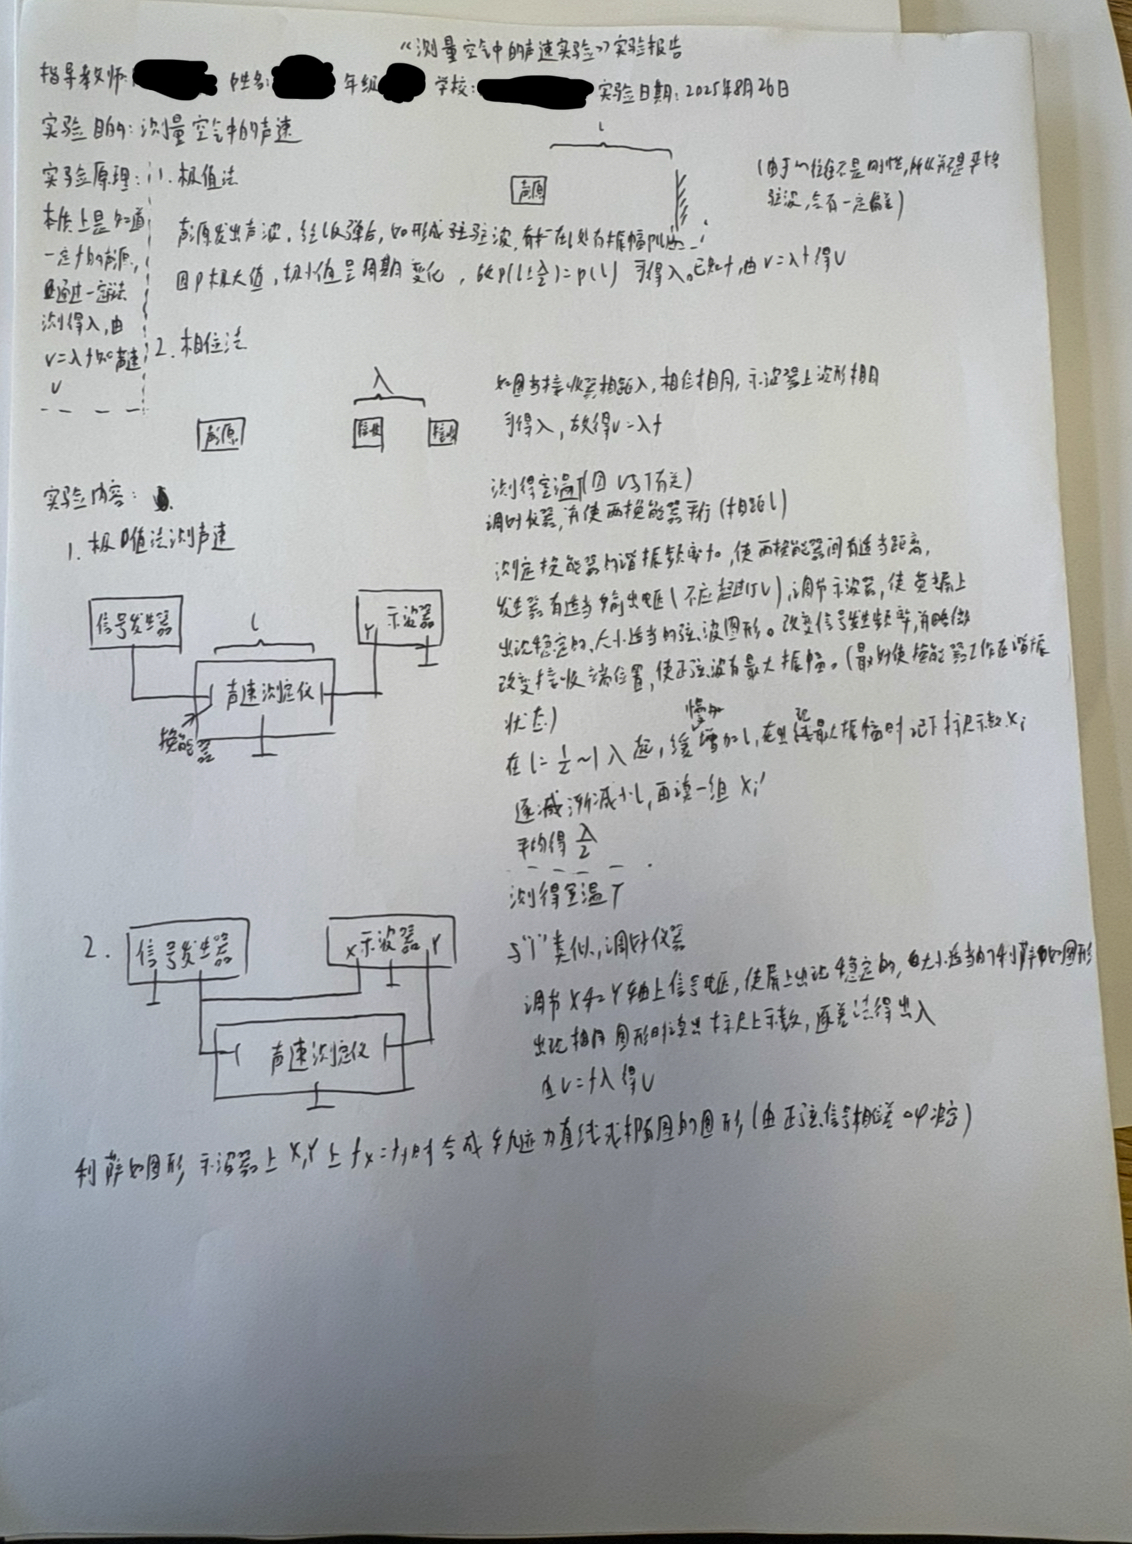 《测量空气中的声速实验》实验报告
指导教师: 姓名: 年级 学校: 实验日期: 2025年8月26日
实验目的: 测量空气中的声速
实验原理:
本质上是知道
一定f的声源,
通过一定法
测得λ,由
v=λf知声速
v
1. 极值法
l
声源
(由于 不是刚性,所以 不是严格
驻波,会有一定偏差)
声源发出声波,经l反弹后, 形成 驻波, 在l处有振幅p
因p极大值,极小值呈周期变化,故p(l±λ/2)=p(l) 可得λ。已知f,由v=λf得v
2. 相位法
λ
声源
接收
接收
如图 接收器相距λ,相位相同,示波器上波形相同
可得λ,故得v=λf
实验内容:
1. 极值法测声速
信号发生器
l
Y 示波器
声速测定仪
换能器
测得室温T(因v与T有关)
调好仪器,并使两换能器平行(相距l)
测定换能器的谐振频率f₀,使两换能器间有适当距离,
发生器有适当输出电压(不应超过 V),调节示波器,使 屏上
出现稳定的、大小适当的 弦波图形。改变信号发生频率,并略微
改变接收端位置,使正弦波有最大振幅。( 使换能器工作在谐振
状态)
在l=1/2~1λ起,缓慢增加l,在出现最大振幅时记下标尺示数xᵢ
逐 渐减小l,再读一组xᵢ'
平均得λ/2
2.
信号发生器
X 示波器 Y
声速测定仪
测得室温T
与"1"类似,调好仪器
调节X和Y轴上信号电压,使屏上出现稳定的,大小适当的 利萨如图形
出现相同图形时读出标尺上示数,逐差法得出λ
由v=fλ得v
利萨如图形,示波器上X,Y上fx=fy时合成轨迹为直线或椭圆的图形,(由正弦信号相位差△φ决定)